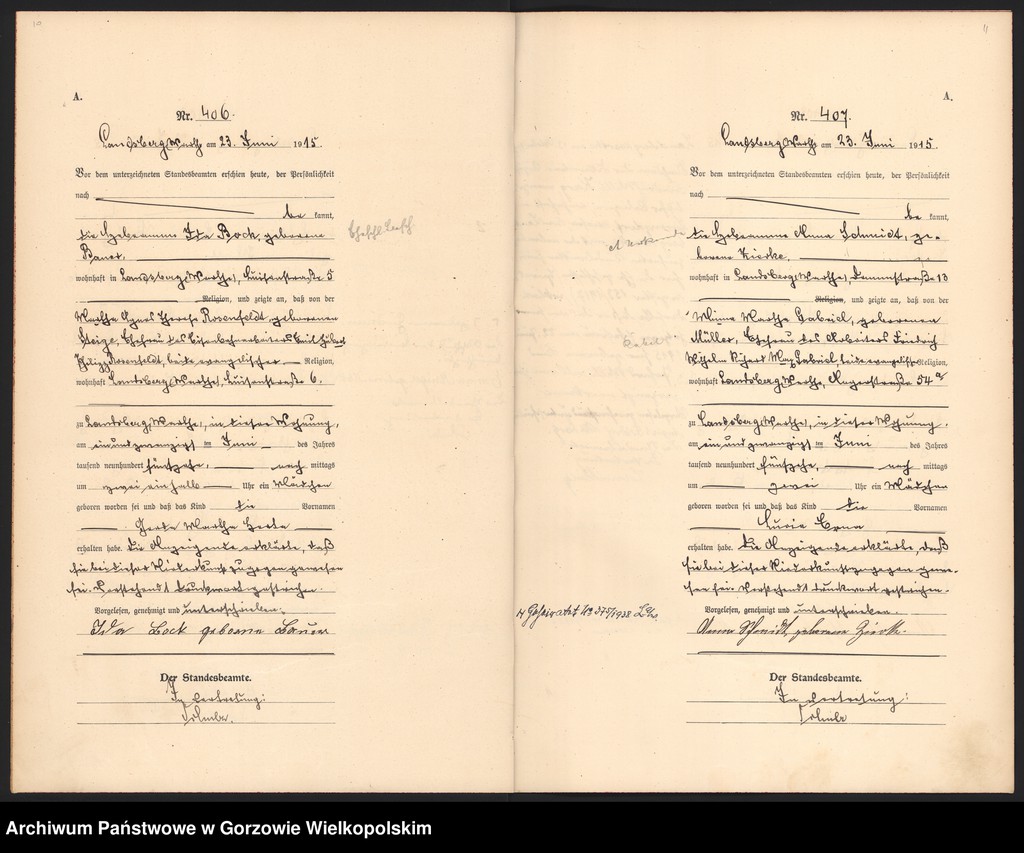 10
A.
Nr. 406.
Landsberg Warthe am 23. Juni 1915.
Vor dem unterzeichneten Standesbeamten erschien heute, der Persönlichkeit
nach
be kannt,
die Hebamme Ida Bock, geborene
Bauer,
wohnhaft in Landsberg (Warthe), Luisenstraße 5
Religion, und zeigte an, daß von der
Martha Agnes Therese Rosenfeldt, geborenen
Steige, Ehefrau des Eisenbahnarbeiters Emil
Philipp Rosenfeldt, beide evangelischer Religion,
wohnhaft Landsberg (Warthe), Luisenstraße 6.
zu Landsberg (Warthe), in dieser Wohnung,
am einundzwanzigsten Juni des Jahres
tausend neunhundert fünfzehn, nach mittags
um zwei einhalb Uhr ein Mädchen
geboren worden sei und daß das Kind die Vornamen
Gerda Martha Herta
erhalten habe. Die Anzeigende erklärte, daß
sie bei dieser Niederkunft zugegen gewesen
sei. Vorstehend Druckwort gestrichen.
Vorgelesen, genehmigt und unterschrieben.
Ida Bock geborene Bauer
Der Standesbeamte.
In Vertretung:
11
A.
Nr. 407.
Landsberg Warthe am 23. Juni 1915.
Vor dem unterzeichneten Standesbeamten erschien heute, der Persönlichkeit
nach
be kannt,
die Hebamme Anna Schmidt, ge-
borene Zierke,
wohnhaft in Landsberg (Warthe), Dammstraße 13
Religion, und zeigte an, daß von der
Minna Martha Gabriel, geborenen
Müller, Ehefrau des Arbeiters Friedrich
Wilhelm Richard Max Gabriel, beide evangelischer Religion,
wohnhaft Landsberg Warthe, Angerstraße 54
zu Landsberg (Warthe), in dieser Wohnung,
am einundzwanzigsten Juni des Jahres
tausend neunhundert fünfzehn, nach mittags
um zwei Uhr ein Mädchen
geboren worden sei und daß das Kind die Vornamen
Lucie Erna
erhalten habe. Die Anzeigende erklärte, daß
sie bei dieser Niederkunft zugegen gewe-
sen sei. Vorstehend Druckwort gestrichen.
Vorgelesen, genehmigt und unterschrieben.
Anna Schmidt, geborene Zierke.
Der Standesbeamte.
In Vertretung:
Archiwum Państwowe w Gorzowie Wielkopolskim